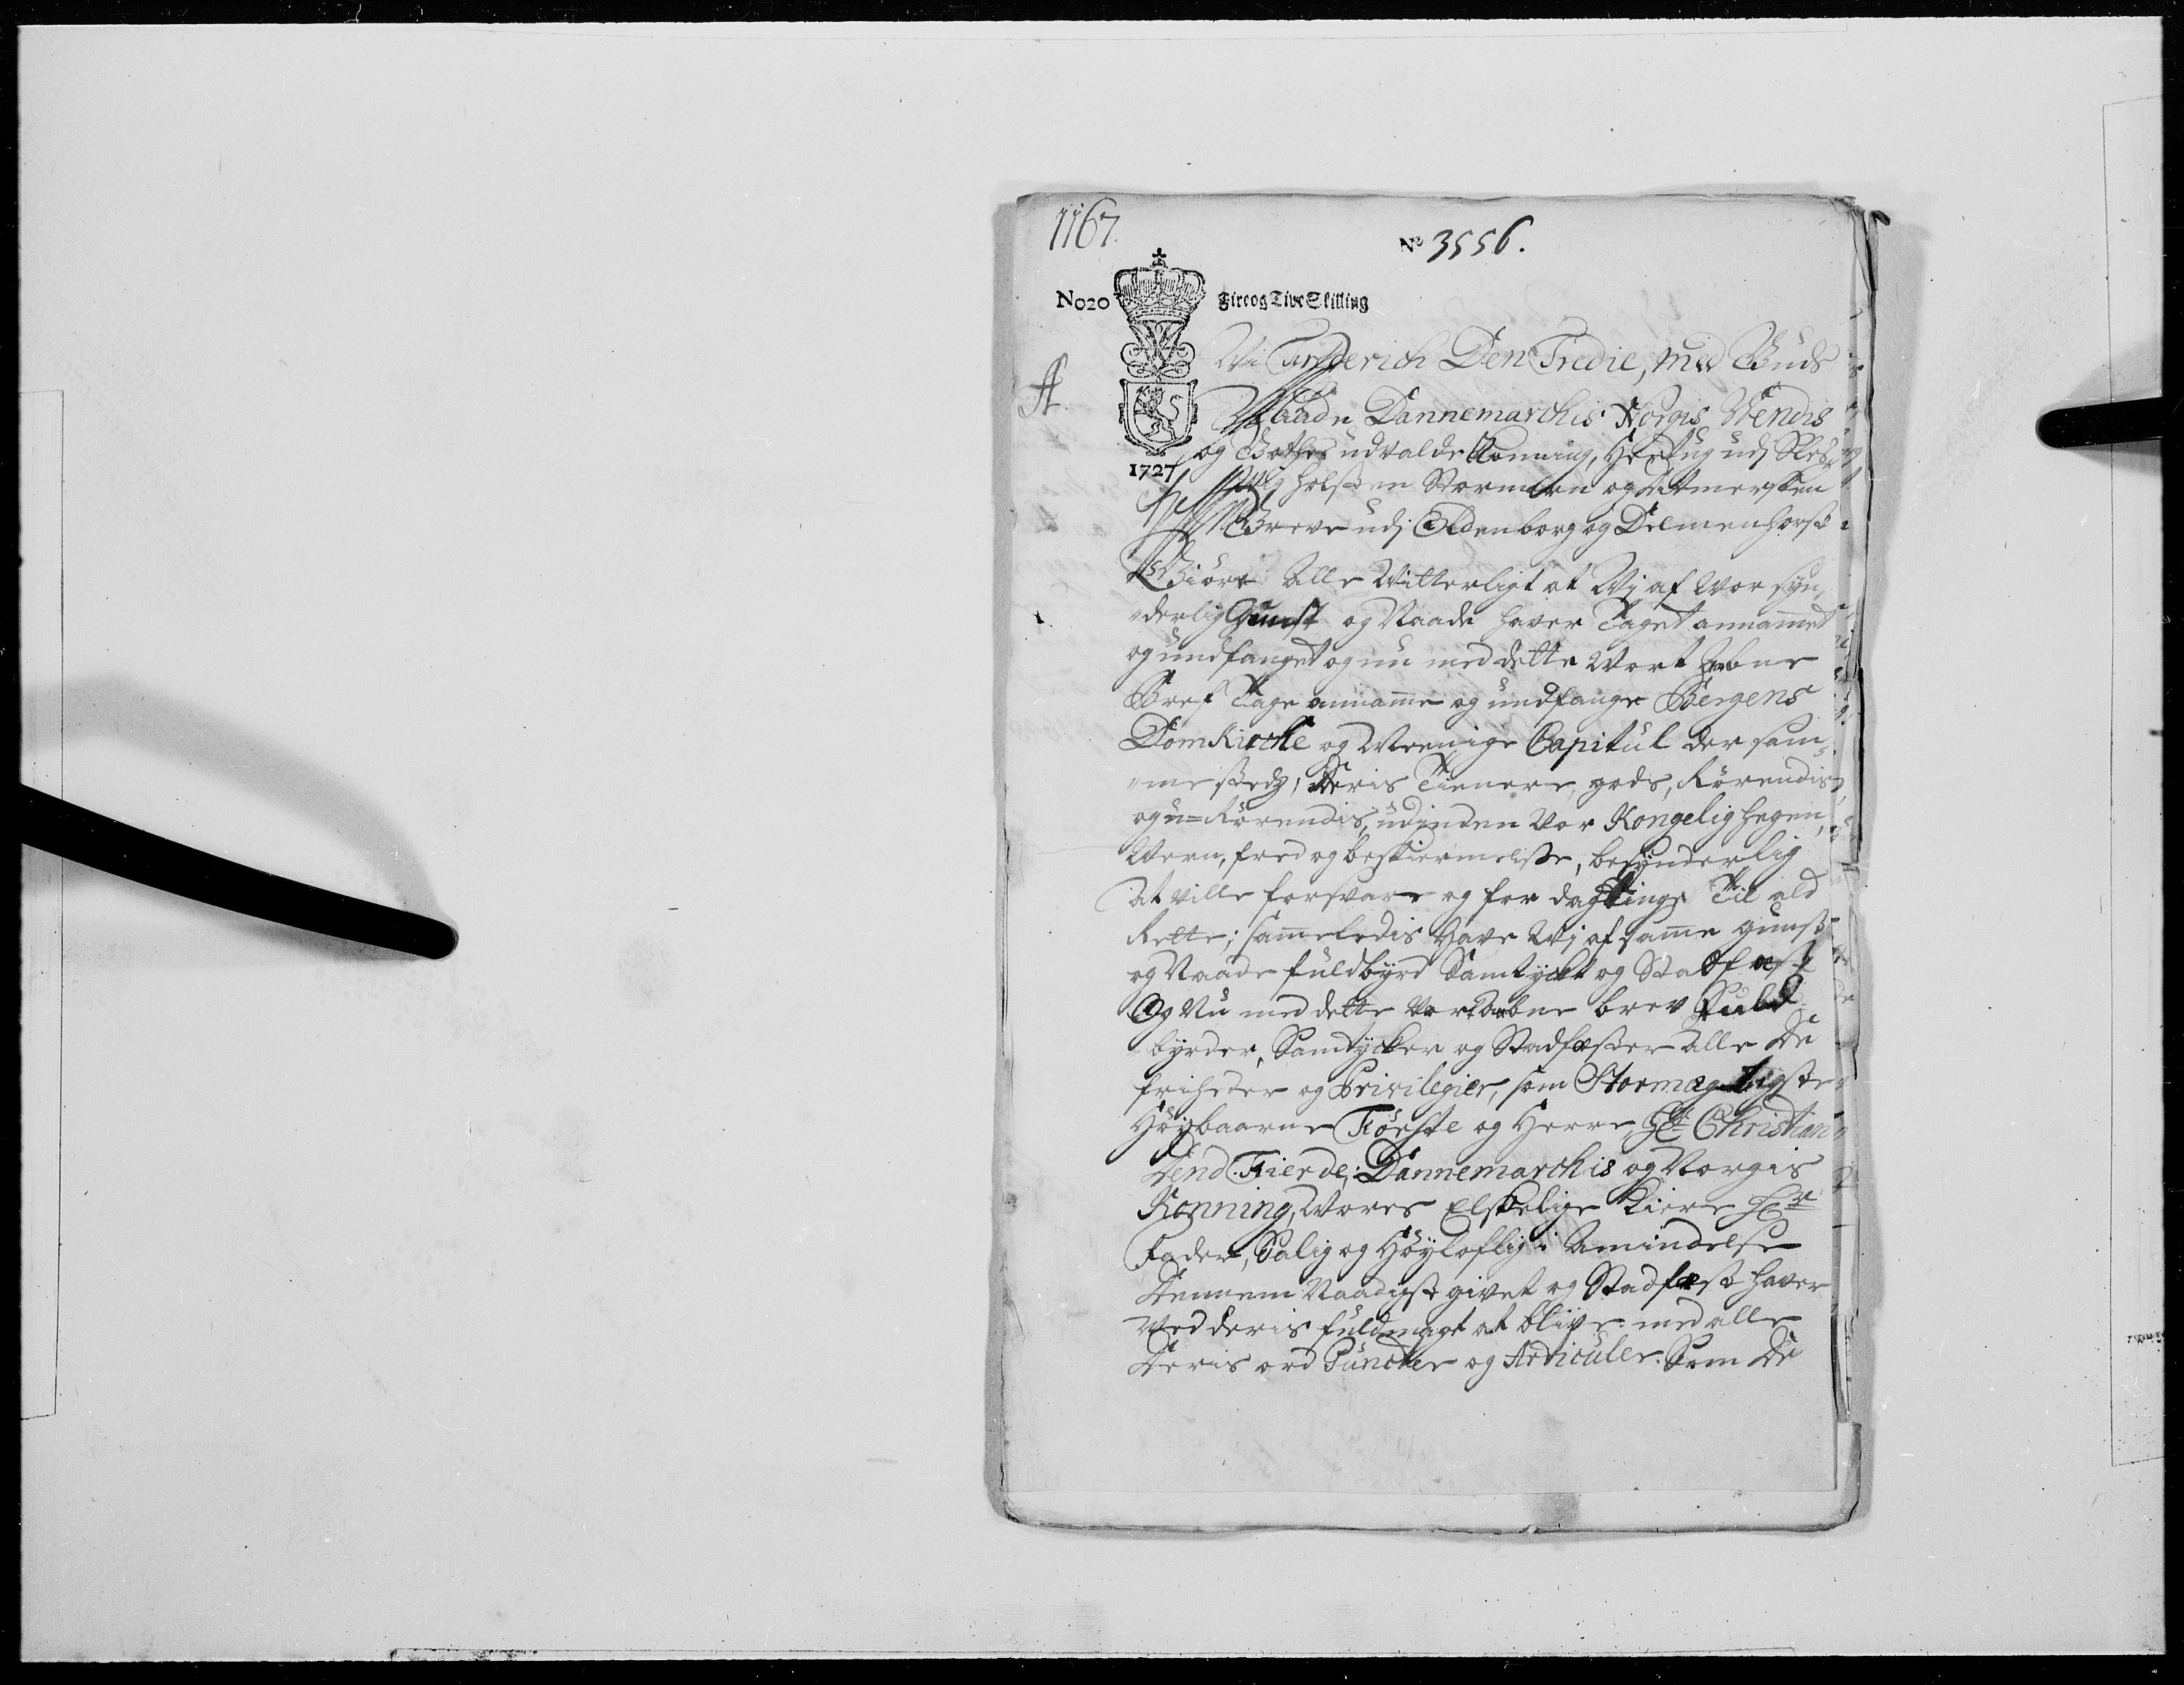 1167.
No 3556.
No20
Fire og Tive Skilling
A.
1727
Wi Friderich Den Tredie, med Guds
Naade Dannemarchis Norgis Vendis
og Gothes udvalde Konning, Hertug udj Sles-
vig Holsten Stormarn og Ditmersken
Greve udj Oldenborg og Delmenhorst
Giöre Alle Vitterligt at Wj af Vor syn-
derlig Gunst og Naade haver Taget annamet
og undfanget og nu med dette Vort Aabne
Bref Tage anname og undfange Bergens
Domkircke og Meenige Capitul der sam-
me stedz, Deris Tienere, gods, Rörendis
og u=Rörendis, udj inden Vor Kongelig hegen,
Wern, fred og beskiermelse, besynderlig
At ville forsvare og for dagtinge Til ald
Rette; sameledis Have Wj af same gunst
og Naade fuldbyrd Samtyckt og Stadfæst
Og Nu med dette Vort Aabne brev Fuld-
byrder, Samtycker og Stadfæster Alle De
friheder og Privilegier, som Stormægtigste
Höybaarne Förste og Herre, Hr Christian
Dend Fierde, Dannemarchis og Norgis
Konning, Vores Elskelige Kiere Hr
Fader, Salig og Höyloflig i Amindelse
Dennem Naadigst givet og Stadfæst haver
Ved deris fuldmagt at blive med alle
Deris ord Puncter og Articuler. Som De